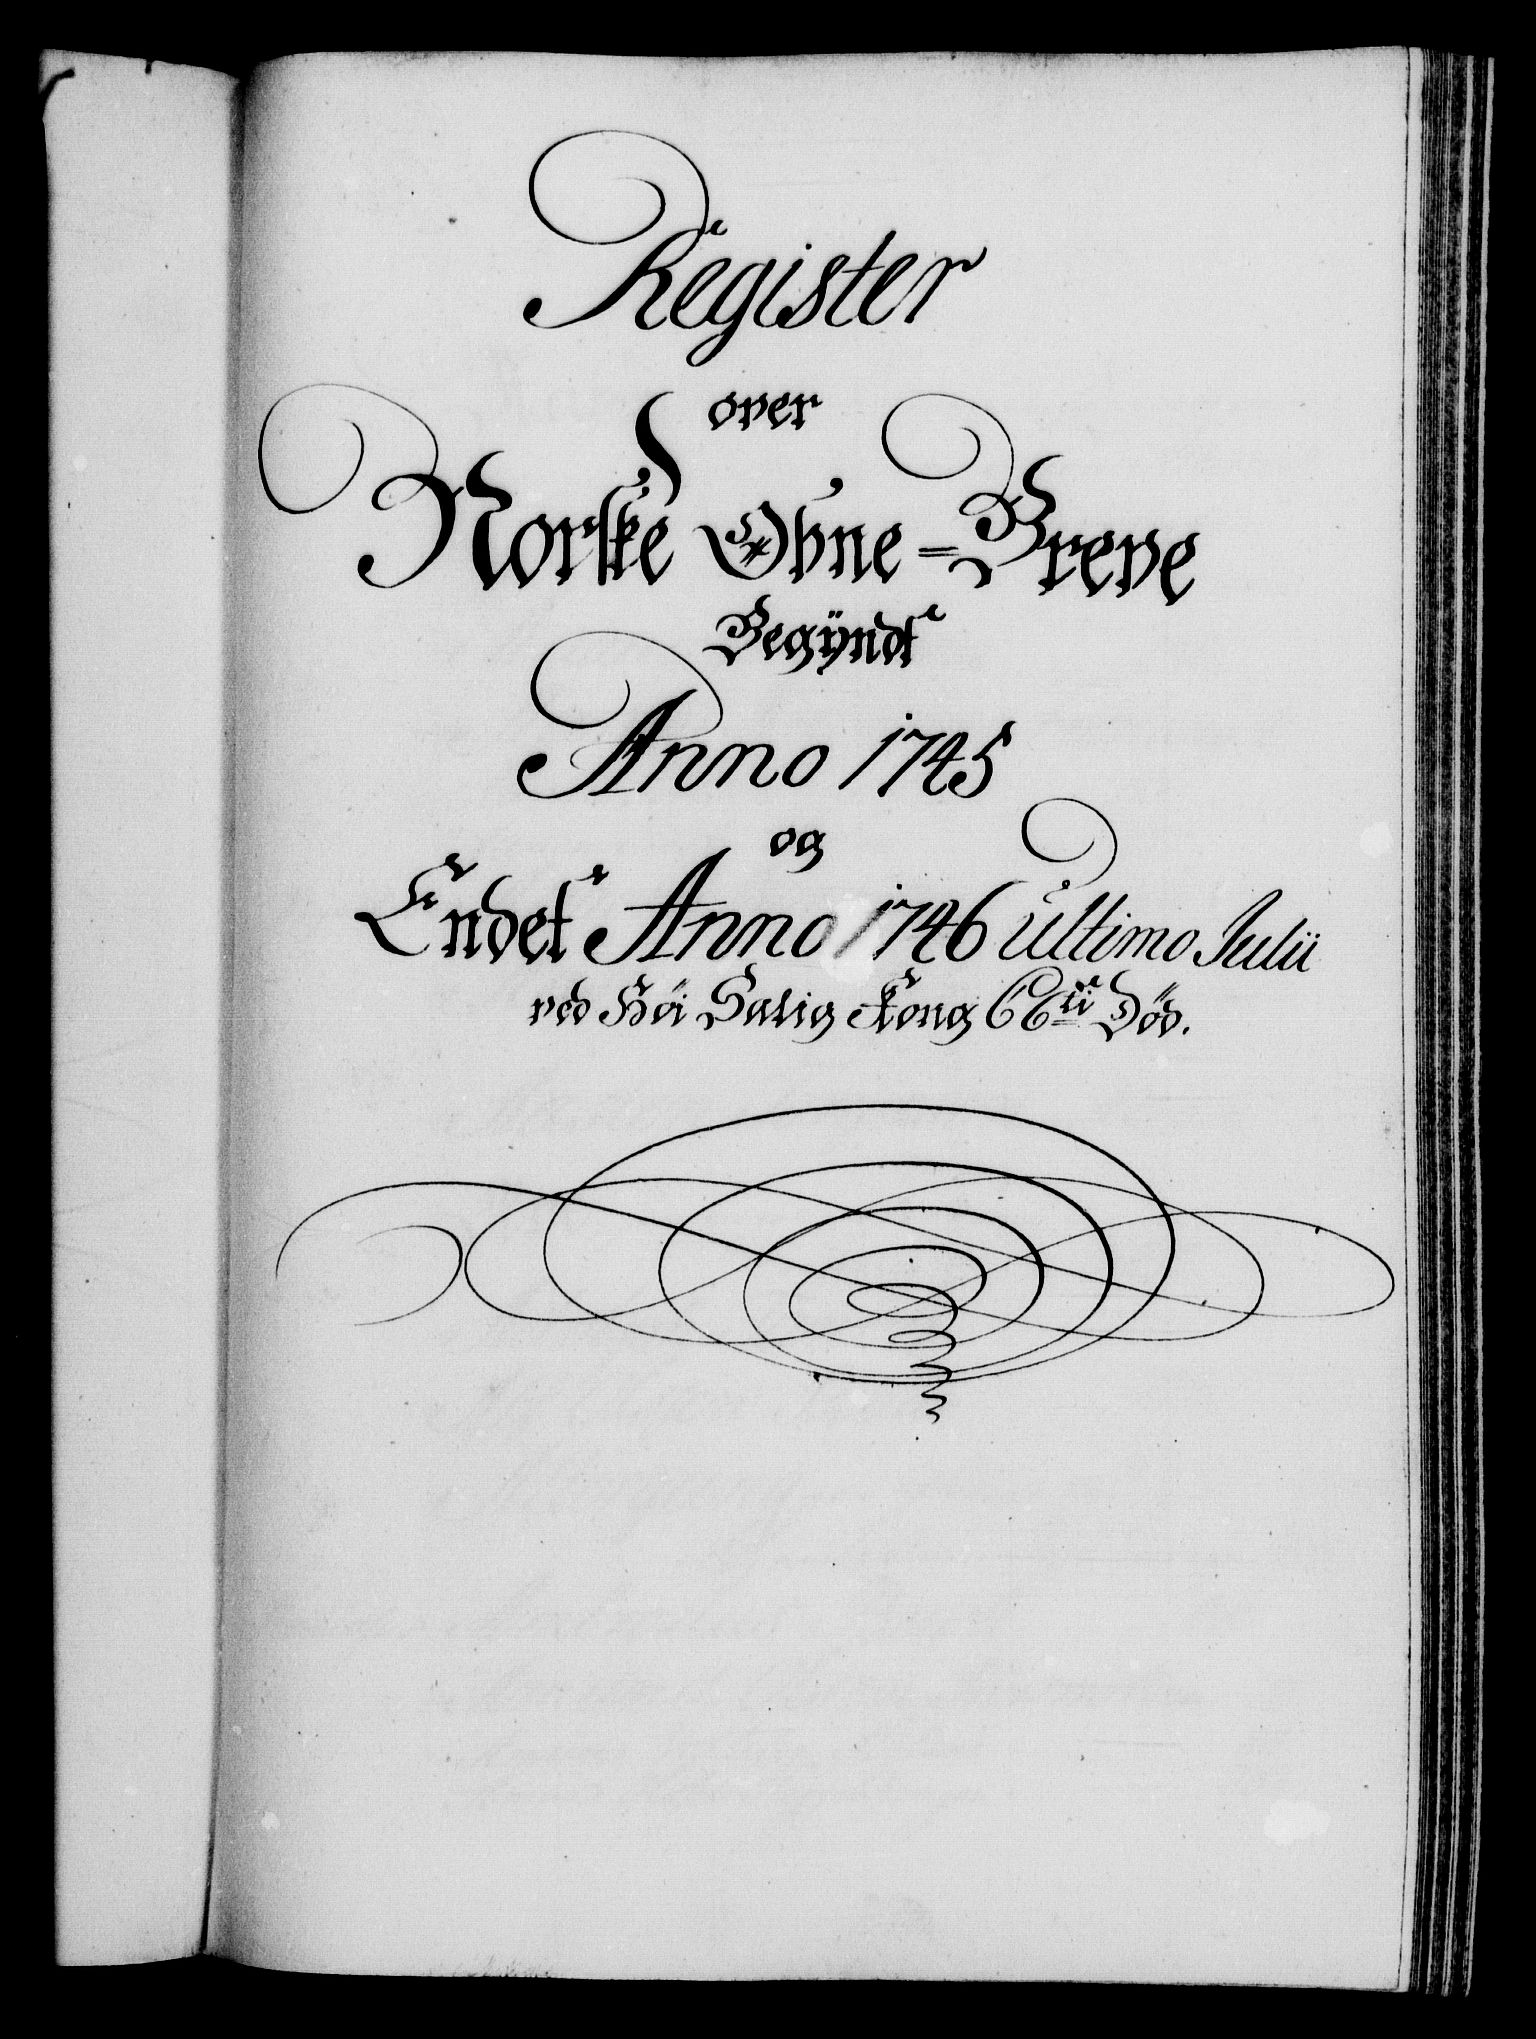 Register
over
Norske Obne=Breve
Begÿndt
Anno 1745
og
Endet Anno 1746 ultimo Julii
ved Höi Salig Kong C 6ti Död.